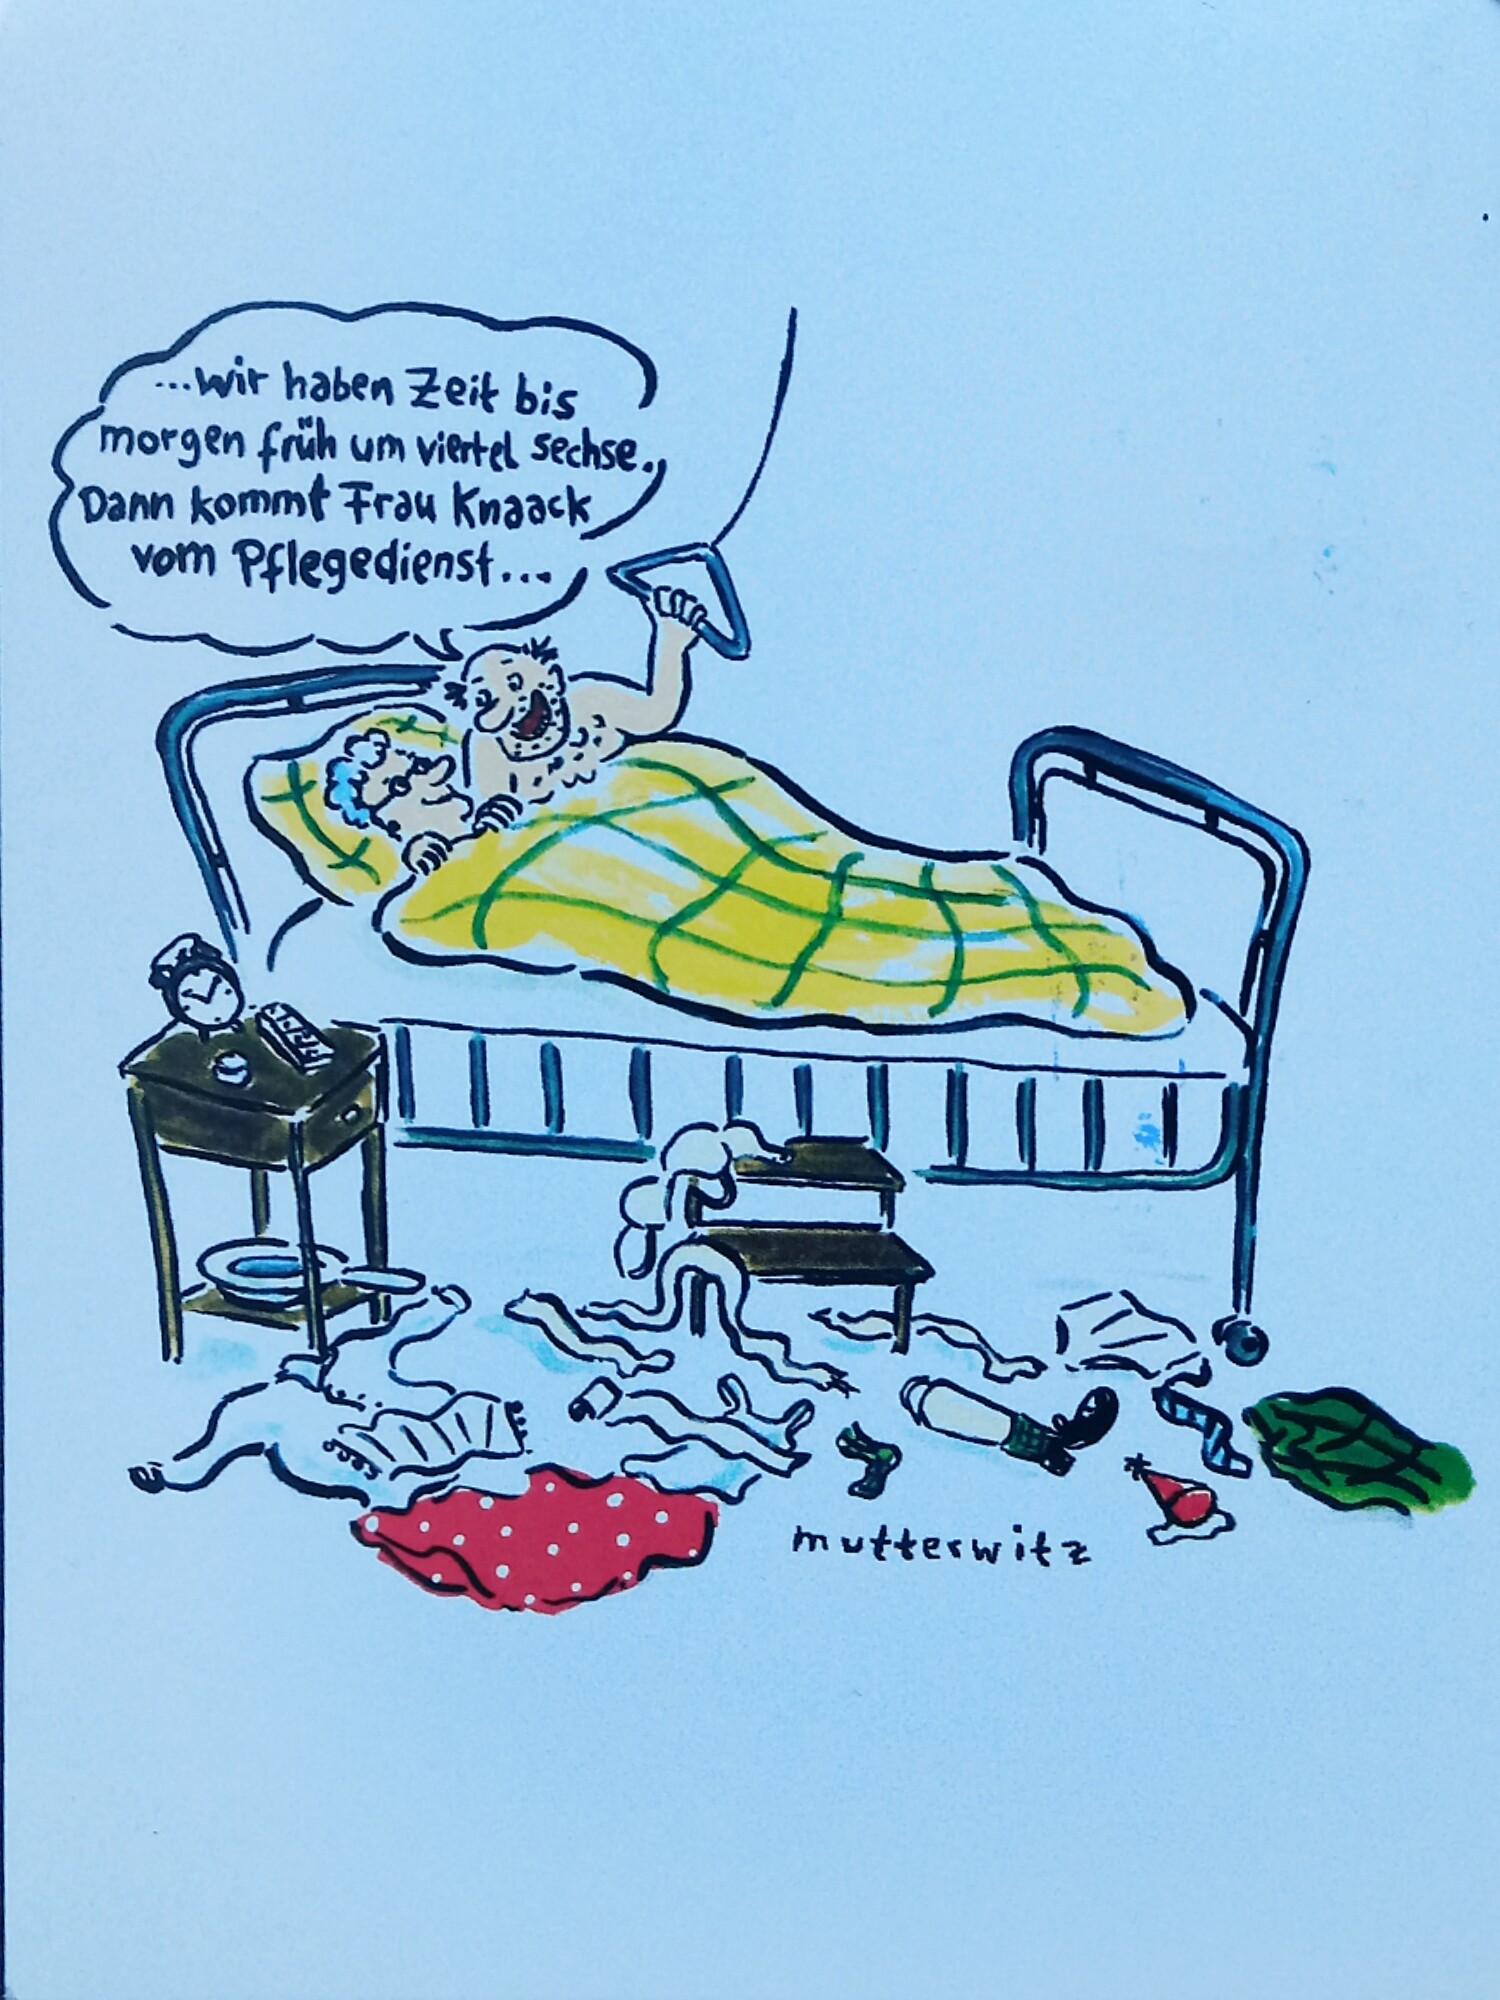 ...wir haben Zeit bis
morgen früh um viertel sechse.
Dann kommt Frau Knaack
vom Pflegedienst...
mutterwitz